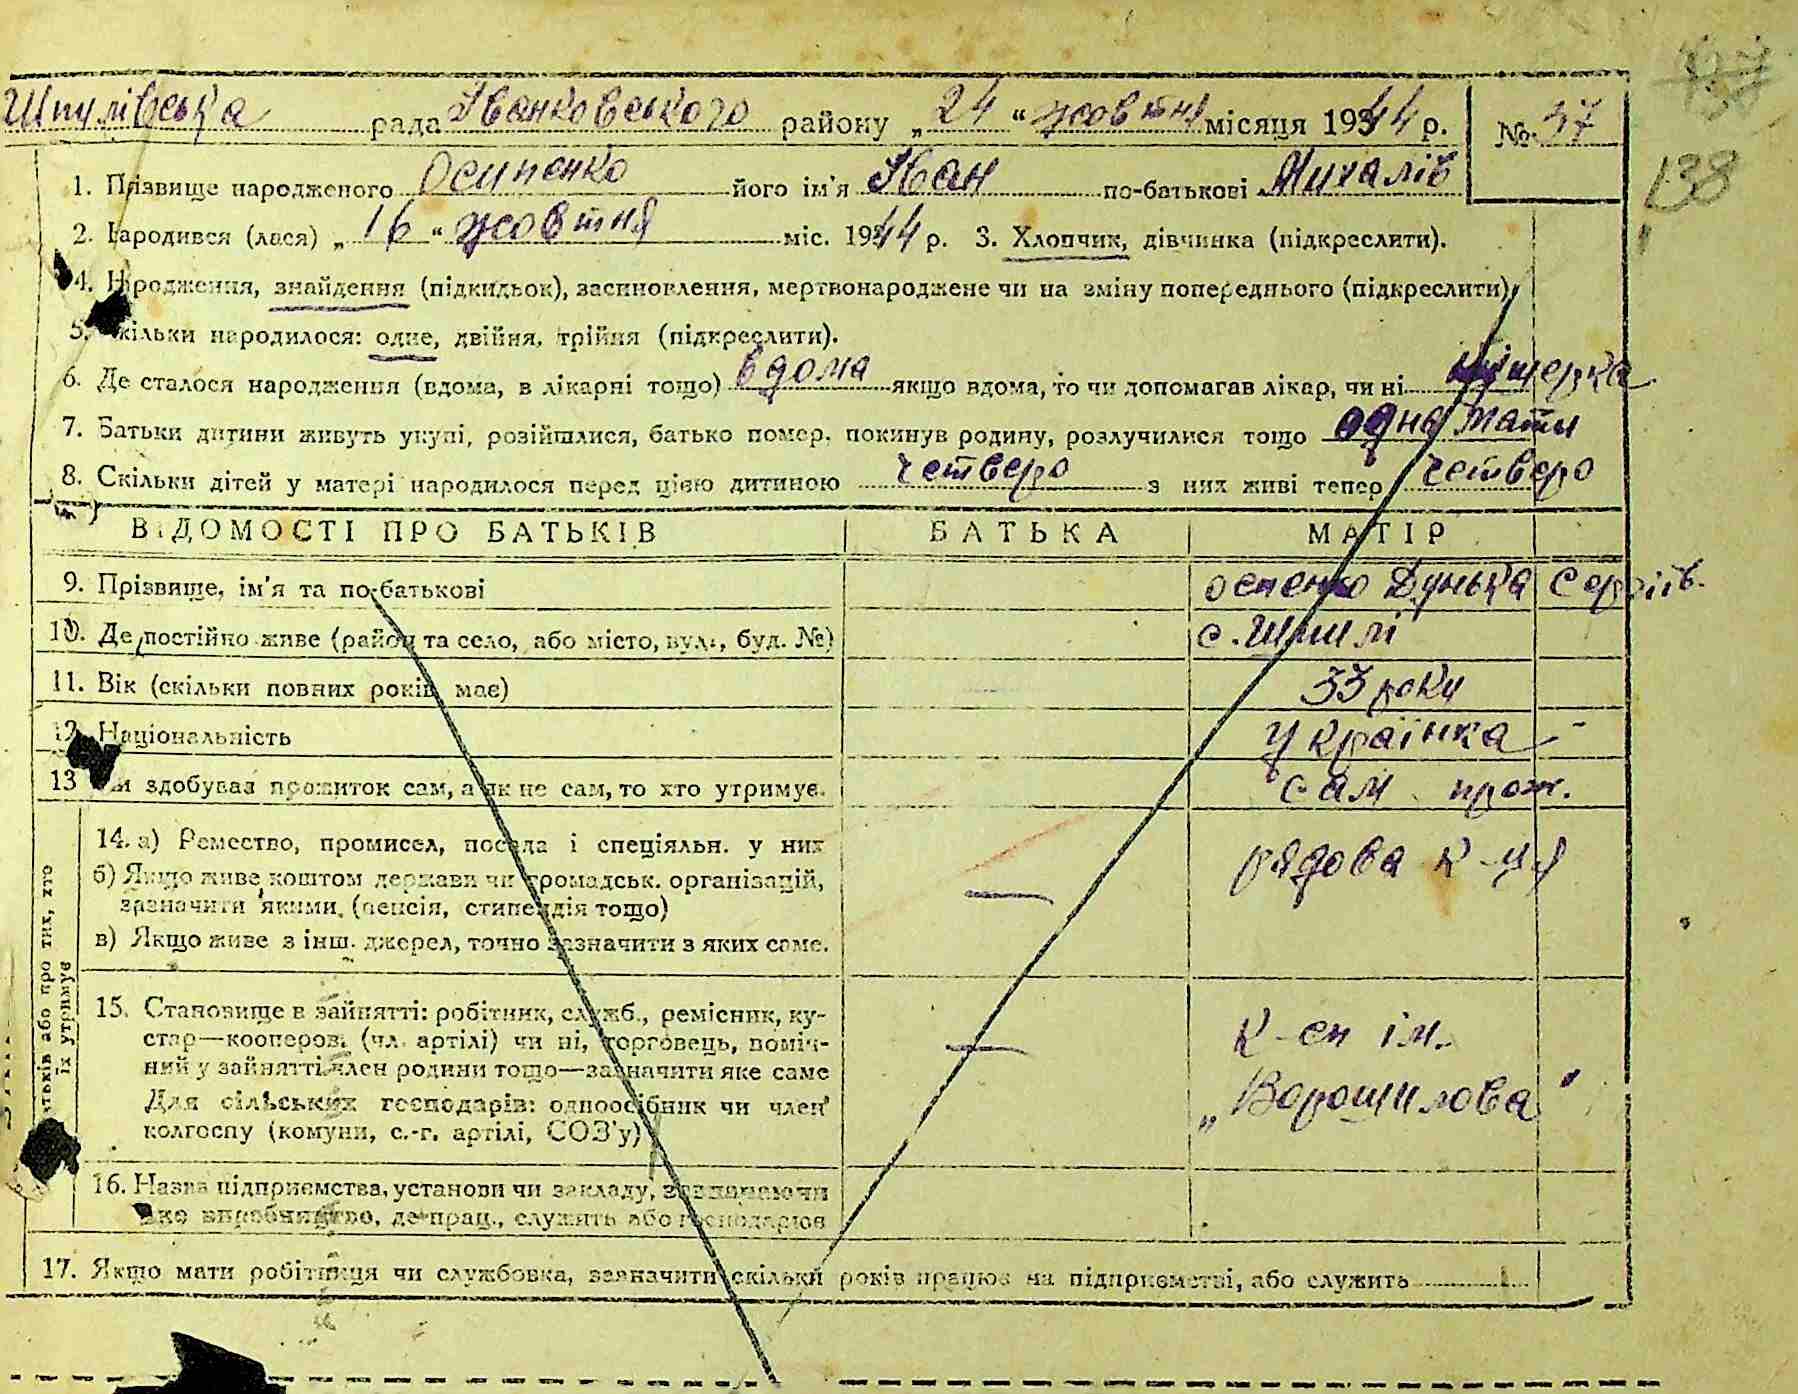 Шпилівська рада Іванковського району „24“ жовтня місяця 1944 р. № 37
138
1. Прізвище народженого Осипенко його ім'я Іван по-батькові Михалів
2. Народився (лася) „16“ жовтня міс. 1944 р. 3. Хлопчик, дівчинка (підкреслити).
4. Народження, знайдення (підкидьок), засиновлення, мертвонароджене чи на зміну попереднього (підкреслити)
5. Скільки народилося: одне, двійня, трійня (підкреслити).
6. Де сталося народження (вдома, в лікарні тощо) вдома якщо вдома, то чи допомагав лікар, чи ні
7. Батьки дитини живуть укупі, розійшлися, батько помер, покинув родину, розлучилися тощо одна мати
8. Скільки дітей у матері народилося перед цією дитиною четверо з них живі тепер четверо
ВІДОМОСТІ ПРО БАТЬКІВ БАТЬКА МАТІР
9. Прізвище, ім'я та по-батькові осепенко Дунька Сергіїв.
10. Де постійно живе (район та село, або місто, вул., буд. №) с. Шпилі
11. Вік (скільки повних років має) 33 роки
12. Національність українка
13 Чи здобував прожиток сам, а як не сам, то хто утримує. сам прож.
14. а) Ремество, промисел, посада і спеціяльн. у них рядова к-ця
б) Якщо живе коштом держави чи громадськ. організацій,
зазначити якими. (пенсія, стипендія тощо) —
в) Якщо живе з інш. джерел, точно зазначити з яких саме.
батьків або про тих, хто
їх утримує
15. Становище в зайнятті: робітник, служб., ремісник, ку-
стар—кооперов. (чл. артілі) чи ні, торговець, поміч- — к-сп ім.
ний у зайнятті член родини тощо—зазначити яке саме
Для сільських господарів: одноосібник чи член „Ворошилова“
колгоспу (комуни, с.-г. артілі, СОЗ'у)
16. Назва підприємства, установи чи закладу, зазначаючи
яке виробництво, де прац., служить або господарює
17. Якщо мати робітниця чи службовка, зазначити скільки років працює на підприємстві, або служить